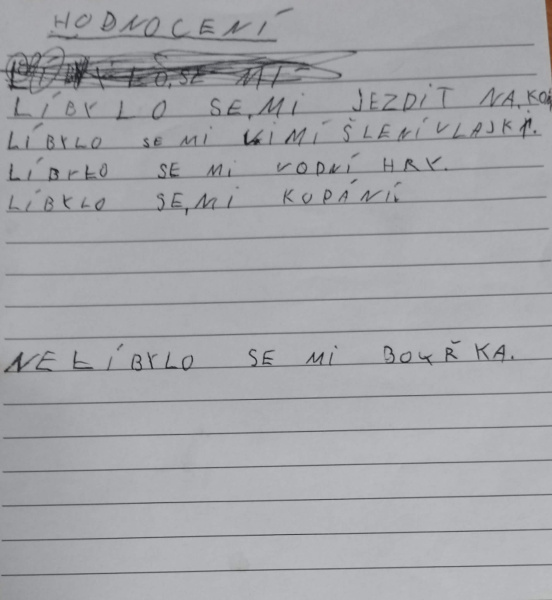 HODNOCENÍ
LÍBYLO SE, MI JEZDIT NA
LÍBYLO SE MI VIMÍŠLENÍ VLAJKY.
LÍBYLO SE MI VODNÍ HRY.
LÍBYLO SE, MI KOPÁNÍ.
NELÍBYLO SE MI BOUŘKA.